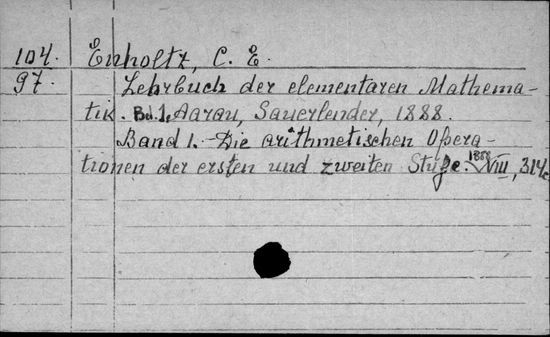 104. Enholtz, C. E.
97. Lehrbuch der elementaren Mathema-
tik. Bd. 1, Aarau, Sauerlender, 1888.
Band 1. Die arithmetischen Opera-
tionen der ersten und zweiten Stufe. 1888 VIII, 314c